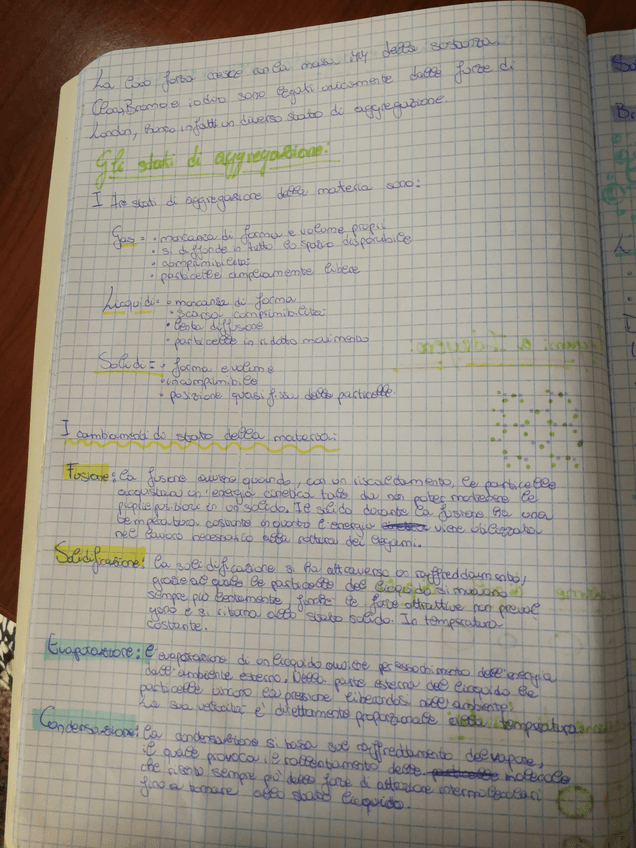 La loro forza cresce con la massa MM della sostanza.
Cloro, Bromo e iodio sono legati unicamente dalle forze di
London, hanno infatti un diverso stato di aggregazione.
Gli stati di aggregazione:
I tre stati di aggregazione della materia sono:
Gas = • mancanza di forma e volume propri
• si diffonde in tutto lo spazio disponibile
• comprimibilità
• particelle ampliamente libere
Liquidi = • mancanza di forma
• scarsa comprimibilità
• lenta diffusione
• particelle in ridotto movimento
Solidi = • forma e volume
• incomprimibile
• posizione quasi fissa delle particelle
I cambiamenti di stato della materia:
Fusione: la fusione avviene quando, con un riscaldamento, le particelle
acquistano un'energia cinetica tale da non poter mantenere le
proprie posizioni in un solido. Il solido durante la fusione ha una
temperatura costante in quanto l'energia viene utilizzata
nel lavoro necessario alla rottura dei legami.
Solidificazione: la solidificazione si ha attraverso un raffreddamento,
grazie al quale le particelle del liquido si muovono
sempre più lentamente finché le forze attrattive non preval
gono e si ritorna allo stato solido. In temperatura
costante.
Evaporazione: l'evaporazione di un liquido avviene per assorbimento dell'energia
dall'ambiente esterno. Dalla parte esterna del liquido le
particelle vincono la pressione liberandosi nell'ambiente.
La sua velocità è direttamente proporzionale alla temperatura
Condensazione: la condensazione si basa sul raffreddamento del vapore,
il quale provoca il rallentamento delle particelle molecole
che risente sempre più delle forze di attrazione intermolecolari
fino a tornare allo stato liquido.